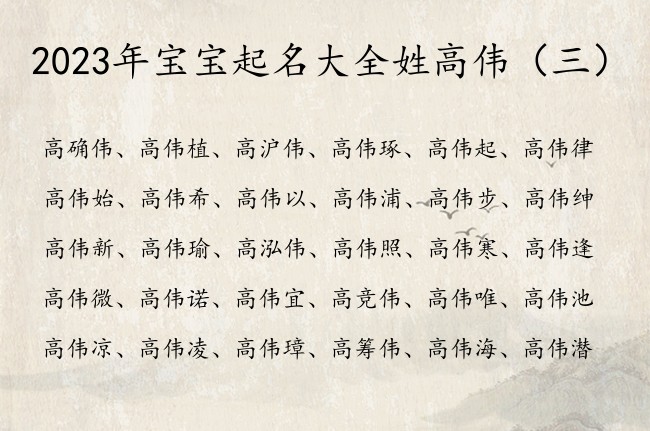 2023年宝宝起名大全姓高伟（三）
高确伟、高伟植、高沪伟、高伟琢、高伟起、高伟律
高伟始、高伟希、高伟以、高伟浦、高伟步、高伟绅
高伟新、高伟瑜、高泓伟、高伟照、高伟寒、高伟逢
高伟微、高伟诺、高伟宜、高竞伟、高伟唯、高伟池
高伟凉、高伟凌、高伟璋、高筹伟、高伟海、高伟潜